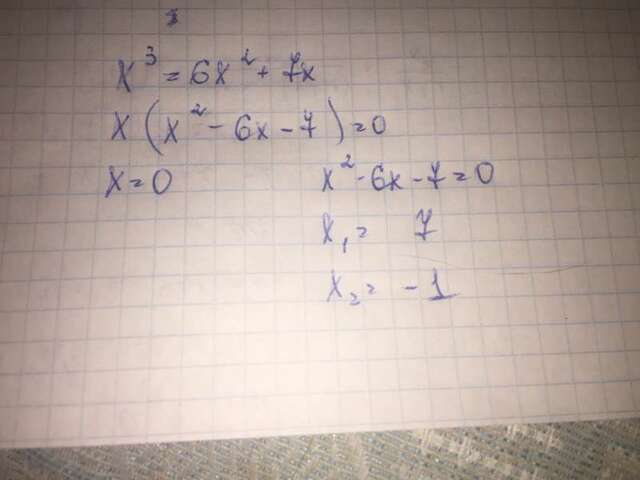 x³ = 6x² + 7x
x(x² - 6x - 7) = 0
x = 0 x² - 6x - 7 = 0
x₁ = 7
x₂ = -1